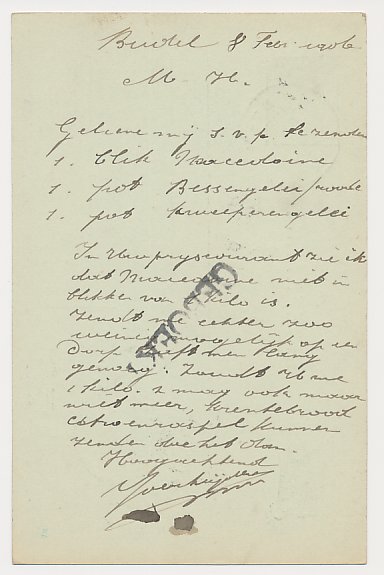 Budel 8 Febr. 1906
M. H.
Gelieve mij s.v.p. te zenden
1. blik Macedoine
1. pot Bessengelei / roode
1. pot kweeperengelei
In Uw pryscourant zie ik
dat Macedoine niet in
blikken van 1 kilo is.
Zendt me echter zoo
weinig mogelijk op een
Dorp heeft men lang
genoeg. Zendt U me
1 kilo. 2 mag ook maar
niet meer,
kunnen
zenden
Hoogachtend